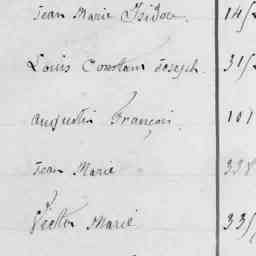 Jean Marie Isidore 145
Louis Constant Joseph. 315
Augustin François. 101
Jean Marie 338
Victor Marie 335